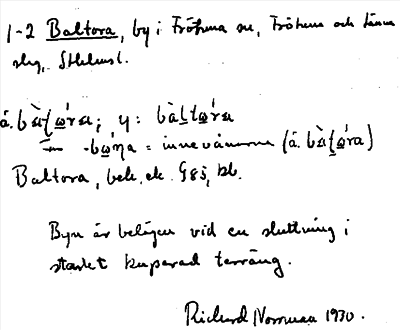 1-2 Baltora, by i Frötuna sn, Frötuna och Länna
slg, Sthlms l.
å. bὰʈὼra; y: bàltὼra
-bὼŋa = innevånarna (å. bὰʈὼra)
Baltora, bek. ek. G85, bl.
Byn är belägen vid en sluttning i
starkt kuperad terräng.
Rickard Norrman 1930.